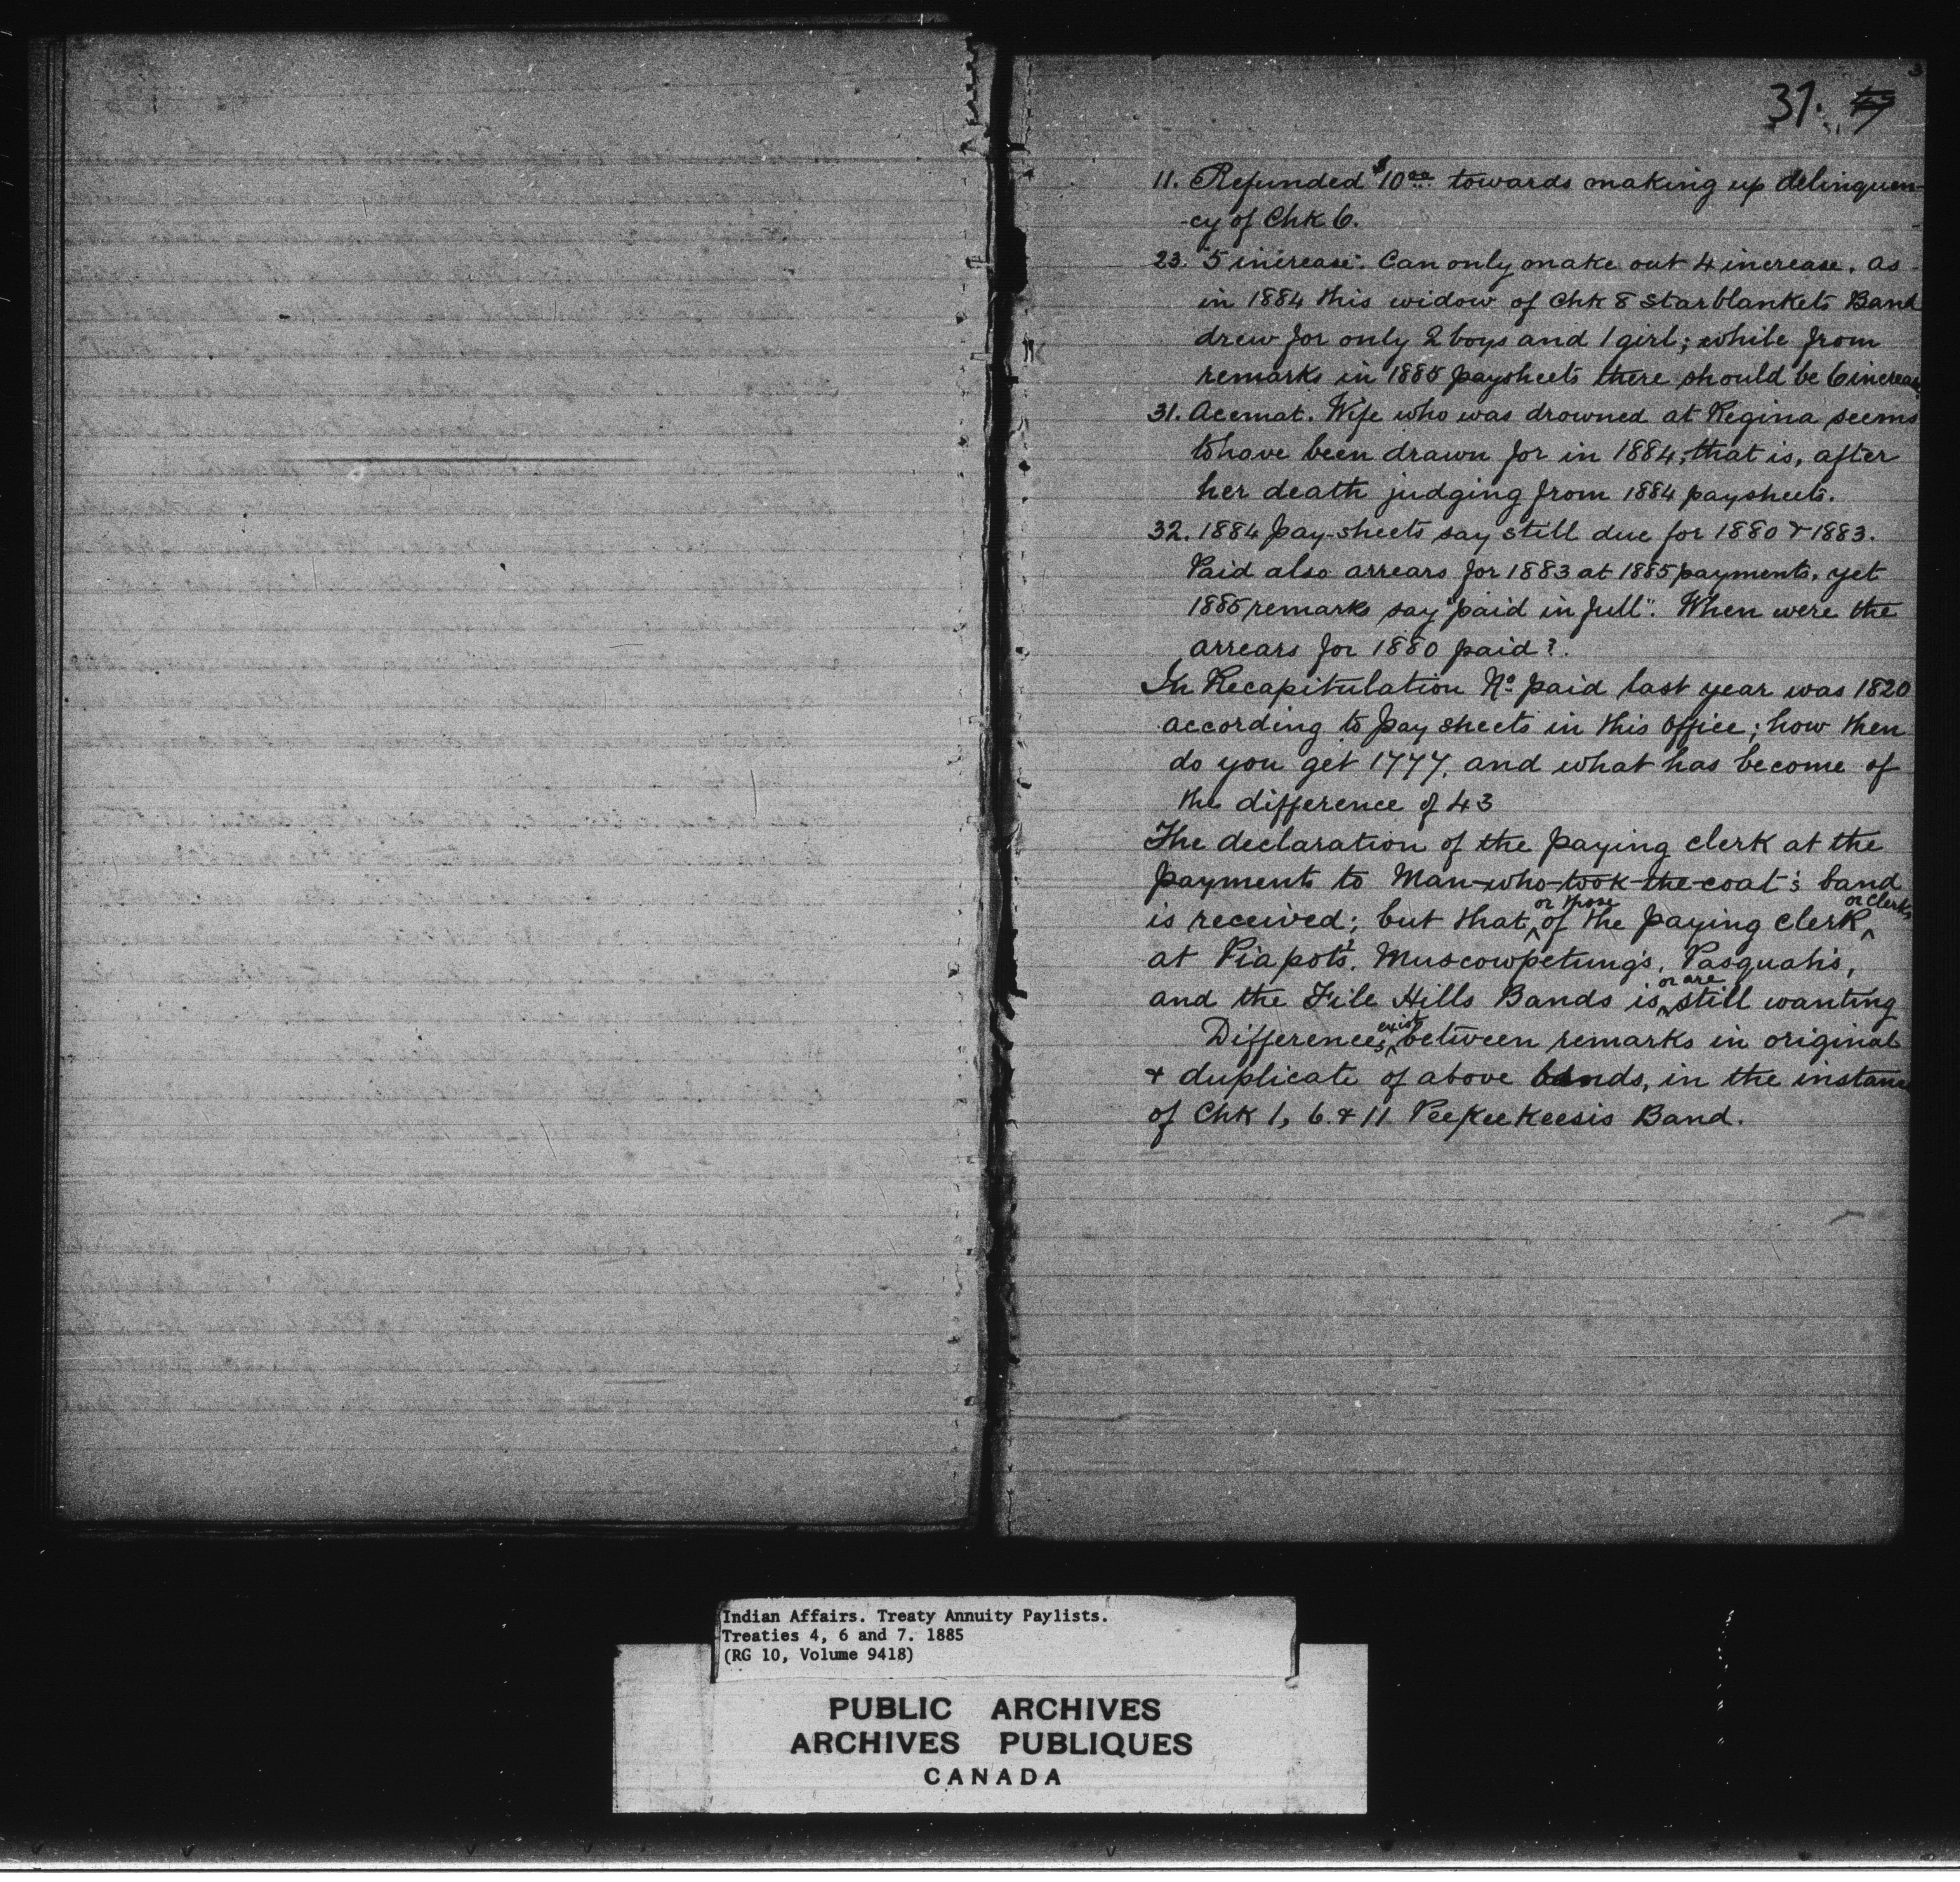 31.
11. Refunded $10.00 towards making up delinquen-
-cy of Chk 6.
23. "5 increase". Can only make out 4 increase. as
in 1884 this widow of Chk 8 Starblankets Band
drew for only 2 boys and 1 girl; while from
remarks in 1885 paysheets there should be 6 increase
31. Acemat. Wife who was drowned at Regina seems
to have been drawn for in 1884, that is, after
her death judging from 1884 paysheets.
32. 1884 pay-sheets say still due for 1880 & 1883.
Paid also arrears for 1883 at 1885 payments, yet
1885 remarks say "paid in full". When were the
arrears for 1880 paid?.
In Recapitulation No. paid last year was 1820
according to pay sheets in this office; how then
do you get 1777, and what has become of
the difference of 43
The declaration of the paying clerk at the
payments to Man-who-took-the-coat's band
is received; but that, or those of the paying clerk or clerks
at Piapot's, Muscowpetung's, Pasquah's,
and the File Hills Bands is or are still wanting
Differences exist between remarks in original
& duplicate of above bands, in the instance
of Chk 1, 6. & 11 Peekeekeesis Band.
Indian Affairs. Treaty Annuity Paylists.
Treaties 4, 6 and 7. 1885
(RG 10, Volume 9418)
PUBLIC ARCHIVES
ARCHIVES PUBLIQUES
CANADA